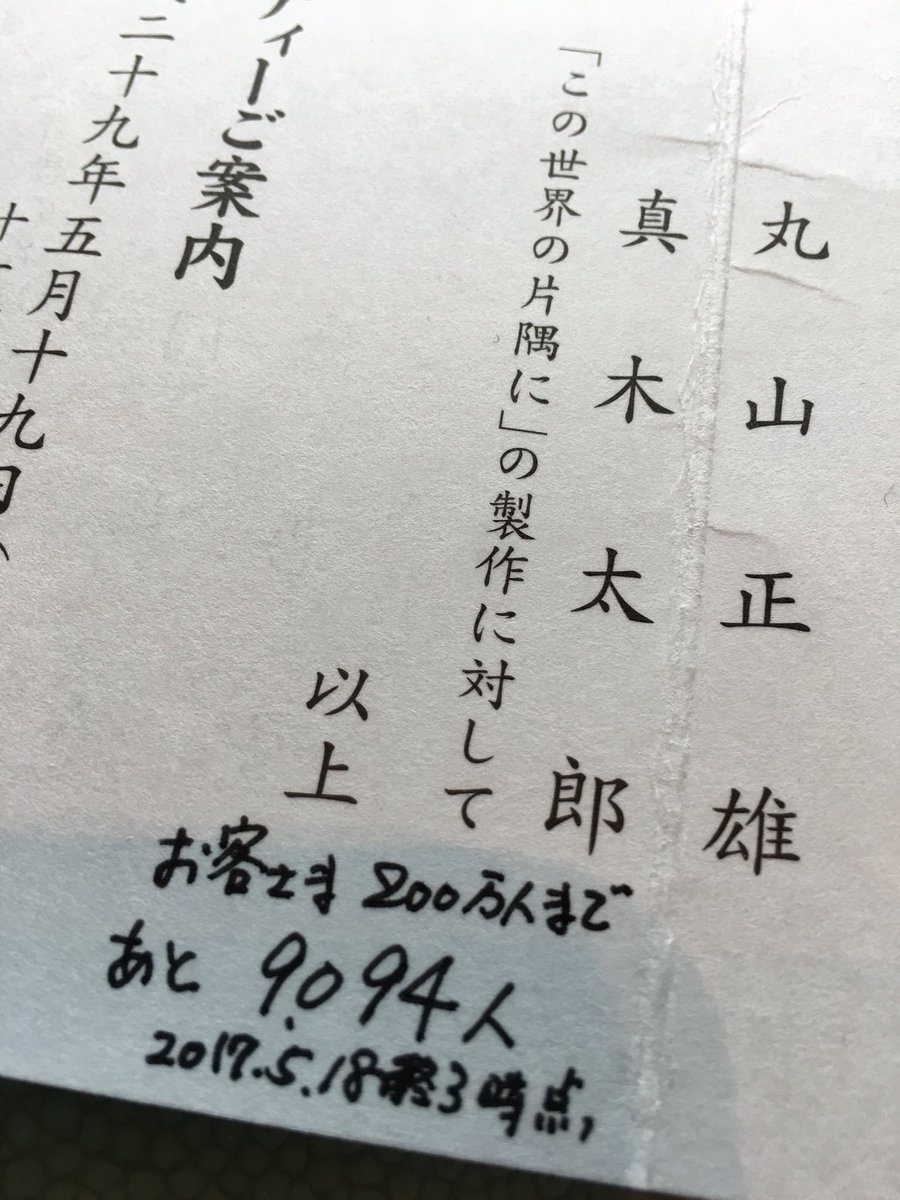 丸山正雄
真木太郎
「この世界の片隅に」の製作に対して
以上
ィーご案内
二十九年五月十九日(
お客さま 200万人まで
あと 9,094人
2017.5.18終了時点,